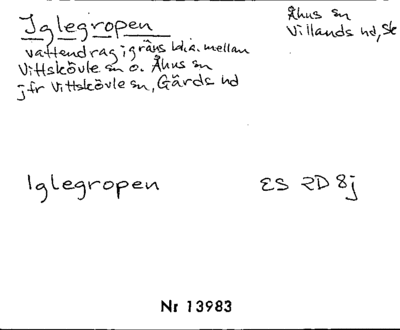 Iglegropen
Åhus sn
Villands hd, Sk
vattendrag i gräns bl.a. mellan
Vittskövle sn o. Åhus sn
jfr Vittskövle sn, Gärds hd
Iglegropen
ES 2D 8j
Nr 13983